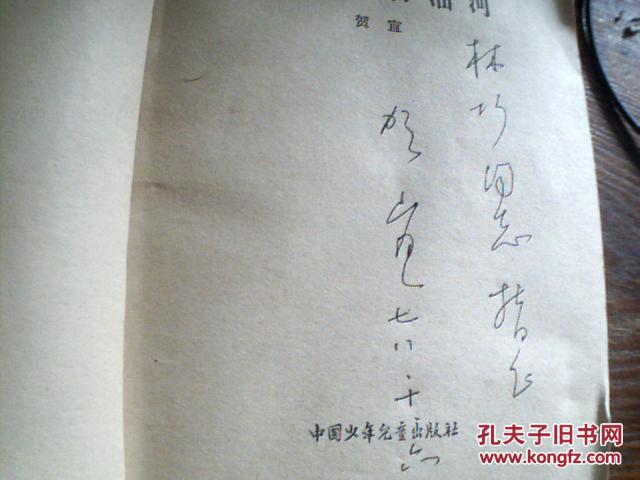 河
贺 宜
林巧同志指正
贺宜
七八·十
中国少年儿童出版社
孔夫子旧书网
www.kongfz.com